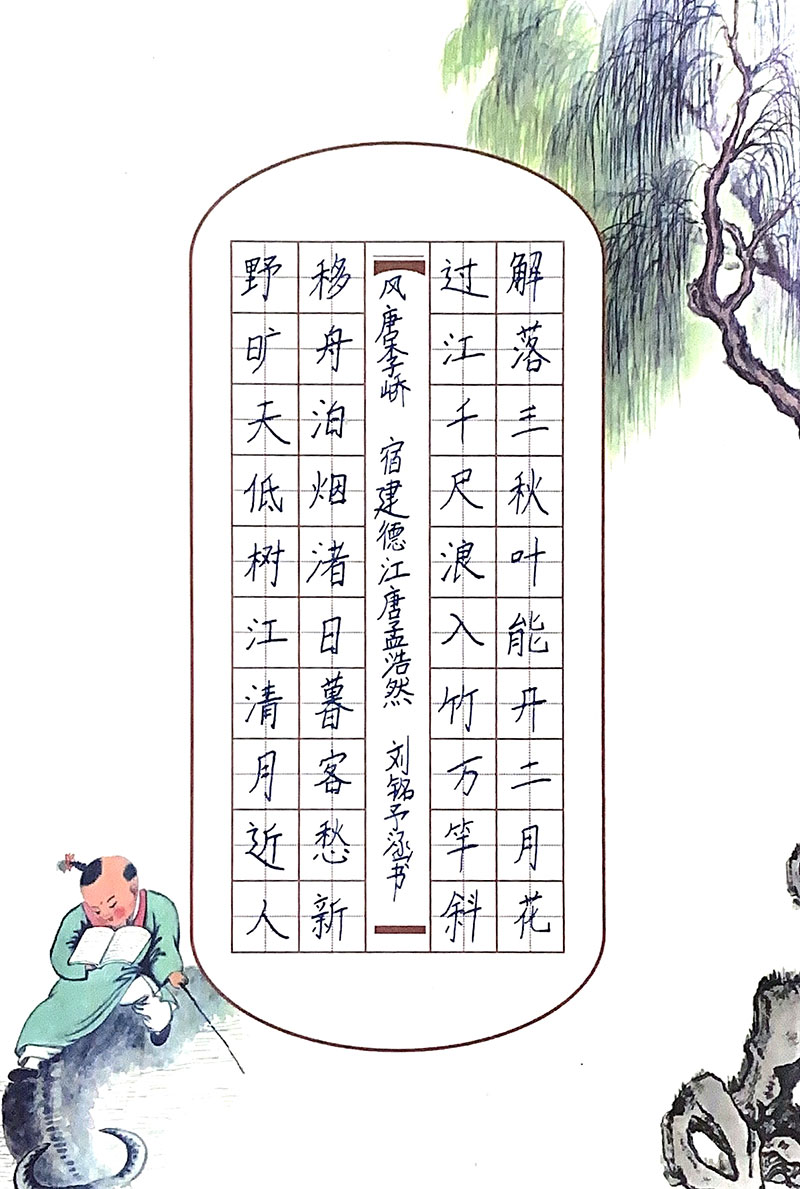 解落三秋叶能丹二月花
过江千尺浪入竹万竿斜
风唐李峤 宿建德江唐孟浩然 刘铭予涵书
移舟泊烟渚日暮客愁新
野旷天低树江清月近人